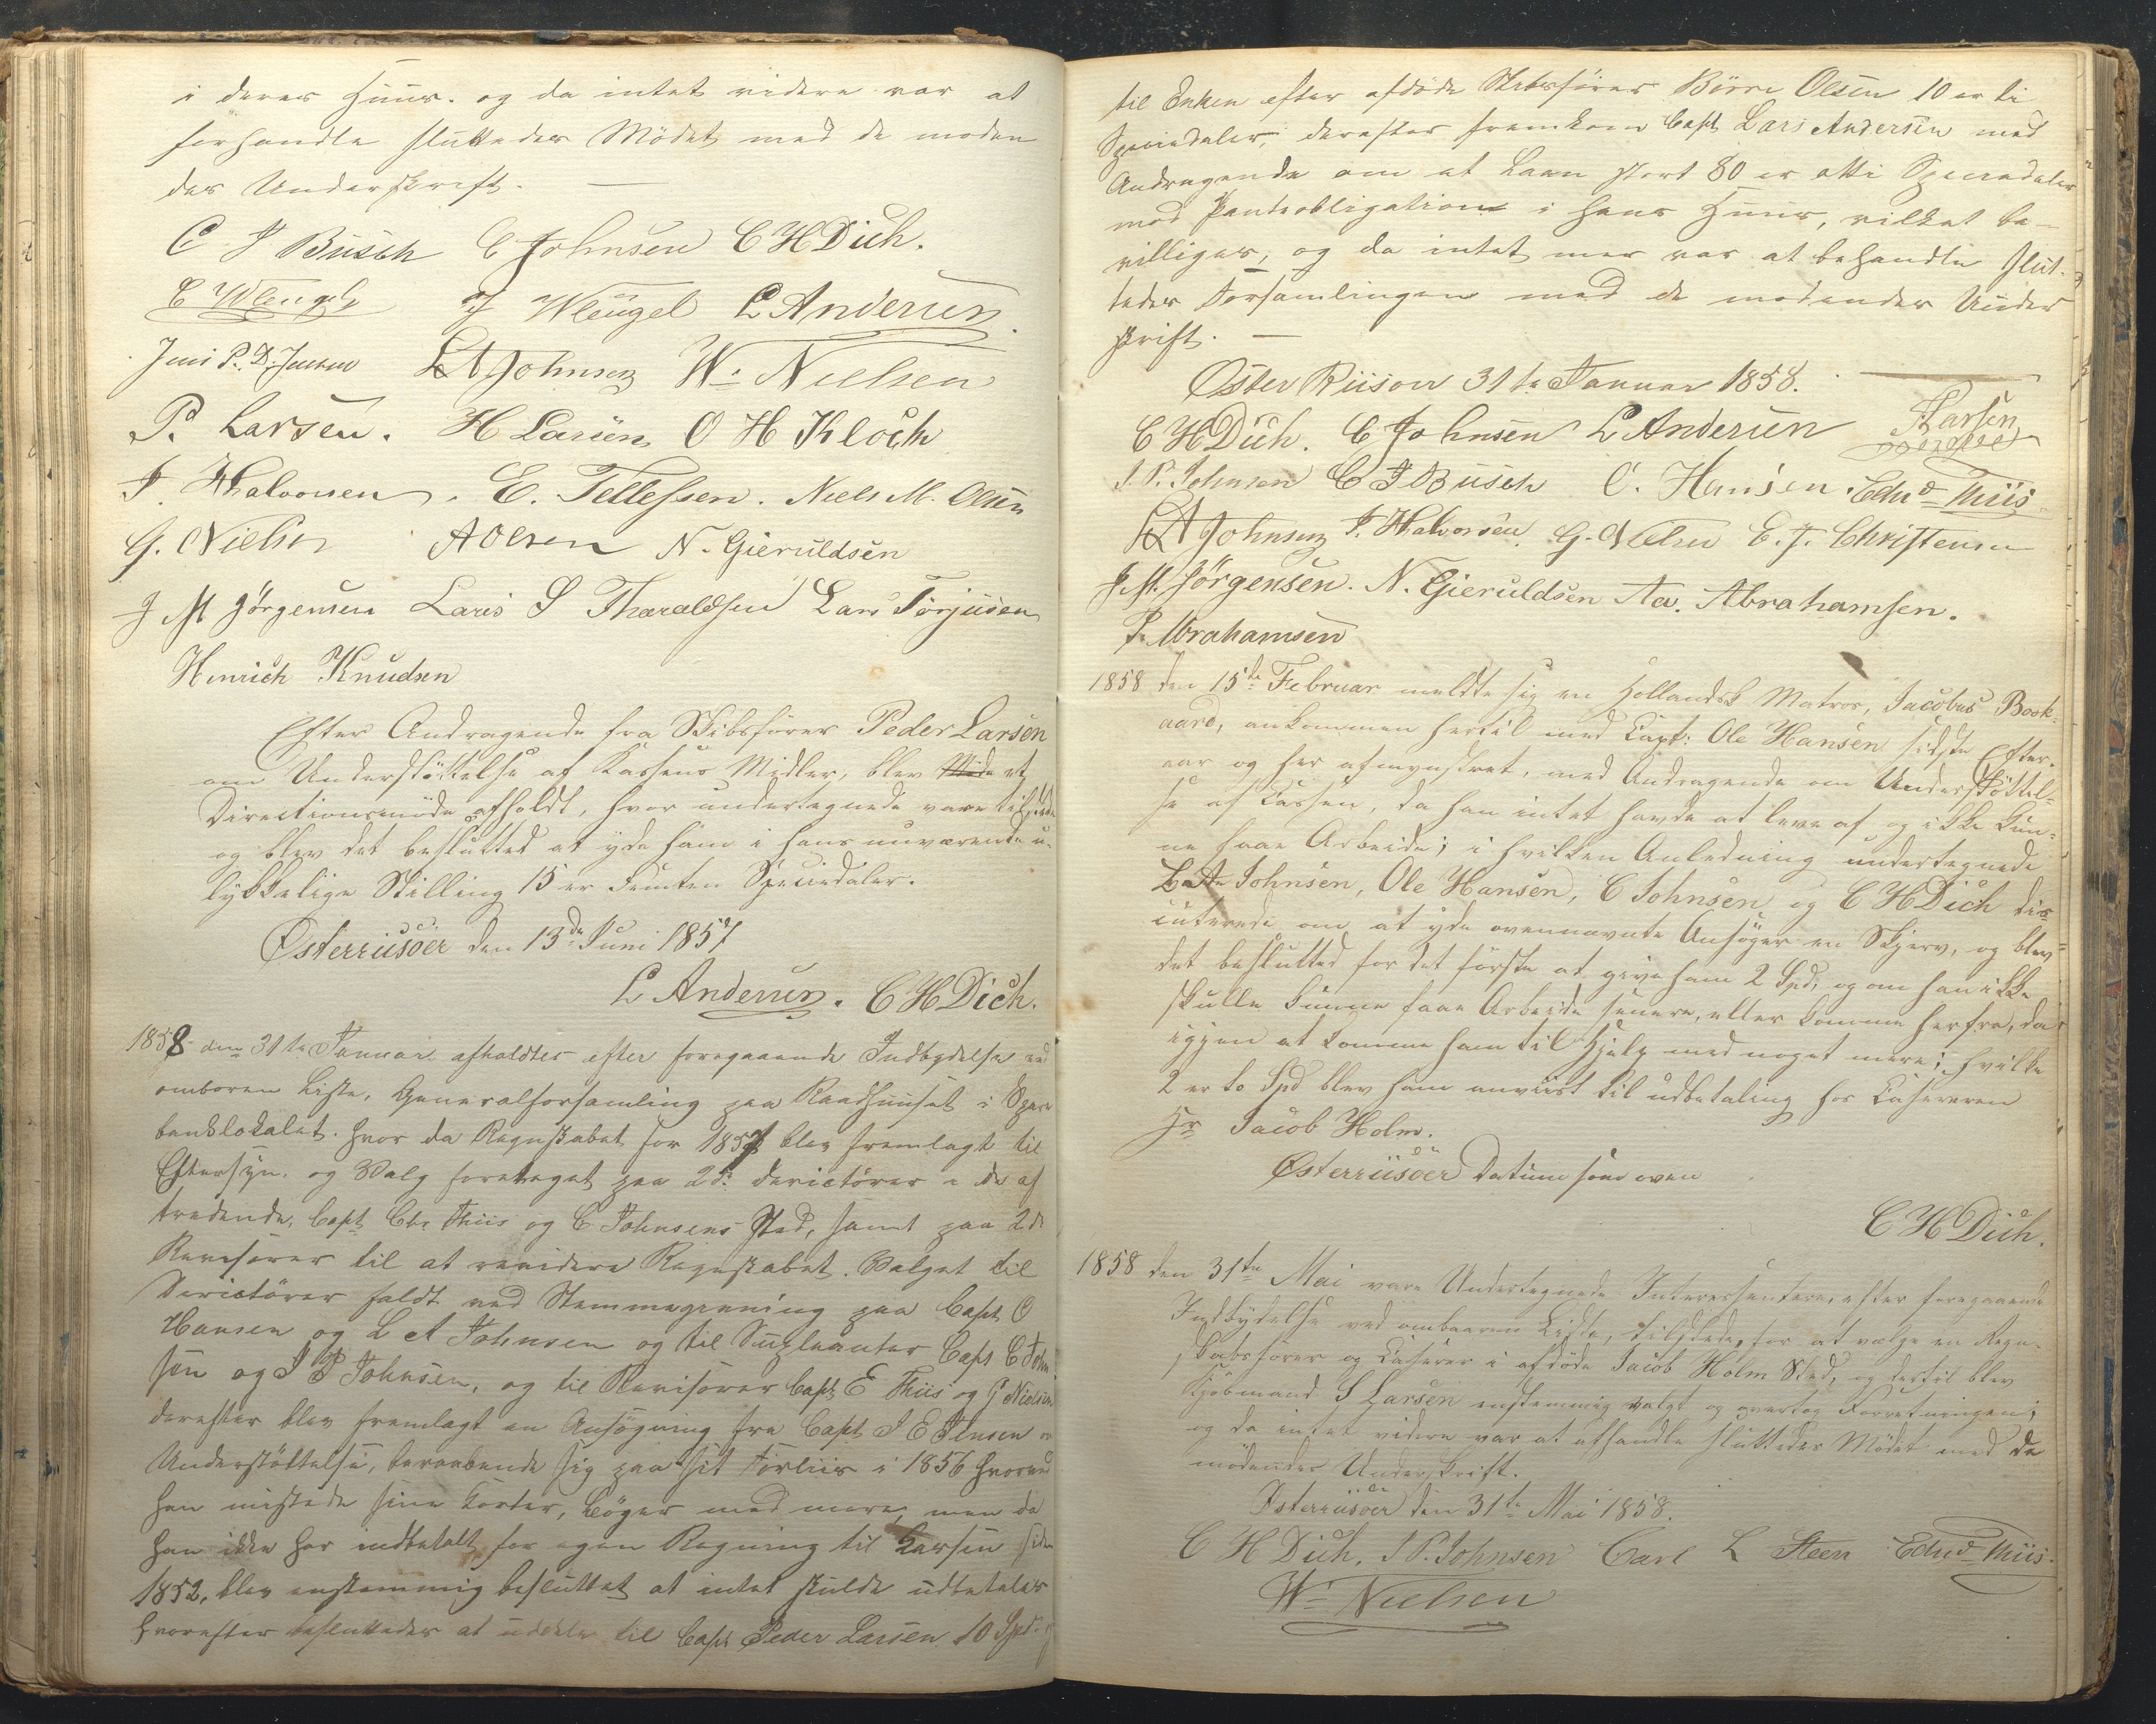 i deres Huus. og da intet videre var at
forhandle sluttedes Mødet med de møden
des Underskrift. —
C J Busch C Johnsen C H Dich.
C Wleugel J Wleugel L Andersen
Jens P. D. Jensen L A Johnsen W. Nielsen
P. Larsen. H Larsen O H Kloch
J. Halvorsen. E. Tellefsen. Niels M. Olsen
G. Nielsen A Olsen N. Gieruldsen
J M Jörgensen Lars S Tharaldsen Lars Torjusen
Henrich Knudsen
Efter Andragende fra Skibsfører Peder Larsen
om Understøttelse af Kassens Midler, blev et
Directionsmøde afholdt, hvor undertegnede vare tilstede
og blev det besluttet at yde ham i hans nuværende u-
lykkelige Stilling 15 er Femten Speciedaler.
Østerriisöer den 13de Juni 1857
L Andersen. C H Dich.
1858 den 31te Januar afholdtes efter foregaaende Indbydelse ved
omboren Liste, Generalforsamling paa Raadhuuset i Spare
banklokalet. hvor da Regnskabet for 1857 blev fremlagt til
Eftersyn. og Valg foretaget paa 2de Derictörer i de af
tredende, Capt Chr Thiis og C Johnsens Sted, samt paa 2de
Revisorer til at revidere Regnskabet. Valget til
Derictörer faldt ved Stemmegivning paa Capt O
Hansen og L A Johnsen og til Supleanter Capt C John
sen og J P Johnsen, og til Revisorer Capt E Thiis og G Nielsen
derefter blev fremlagt en Ansøgning fra Capt J E Jensen om
Understøttelse, beraabende sig paa sit Forliis i 1856 hvorved
han mistede sine Karter, Bøger med mere, men da
han ikke har indbetalt for egen Regning til Kassen siden
1852, blev enstemmig besluttet at intet skulde udbetales
hvorefter besluttedes at uddele til Capt Peder Larsen 10 Spd. og
til Enken efter afdøde Skibsfører Börre Olsen 10 er ti
Speciedaler, derefter fremkom Capt Lars Andersen med
Andragende om at Laan stort 80 er otti Speciedaler
mod Panteobligation i hans Huus, vilket be-
villiges, og da intet mer var at behandle slut-
tedes Forsamlingen med de mødendes Under
skrift. —
Øster Riisöer 31te Januar 1858.
C H Dich. C Johnsen L Andersen P. Larsen
J. P. Johnsen C J Busch O. Hansen. Edvd Thiis
L A Johnsen J. Halvorsen. G. Nielsen E. J. Christensen
J. M. Jörgensen. N. Gieruldsen Aa. Abrahamsen.
P. Abrahamsen
1858 den 15de Februar meldte sig en Hollandsk Matros, Jacobus Book-
aard, ankommen hertil med Capt: Ole Hansen sidste Efter-
aar og her afmynstret, med Andragende om Understøttel-
se af Cassen, da han intet havde at leve af og ikke kun-
ne faae Arbeide; i hvilken Anledning undertegnede
Johnsen, Ole Hansen, C Johnsen og C H Dich dis-
cuterede om at yde ovennævnte Ansøger en Skjerv, og blev
det besluttet for det første at give ham 2 Spd, og om han ikke
skulle kunne faae Arbeide senere, eller komme herfra, da
igjen at komme ham til Hjelp med noget mere; hvilke
2 er to Spd blev ham anviist til udbetaling hos Casereren
Hr Jacob Holm.
Østerriisöer Datum som oven
C H Dich.
1858 den 31te Mai vare Undertegnede Interessentere, efter foregaaende
Indbydelse ved ombaaren Liste, tilstede for at vælge en Regn-
skabsfører og Caserer i afdøde Jacob Holm Sted, og dertil blev
Kjøbmand S Larsen enstemmig valgt og overtog Forretningen;
og da intet videre var at afhandle sluttedes Mødet med de
mødendes Underskrift.
Østerriisöer den 31te Mai 1858.
C H Dich, J P. Johnsen Carl L Steen Edvd Thiis.
W. Nielsen